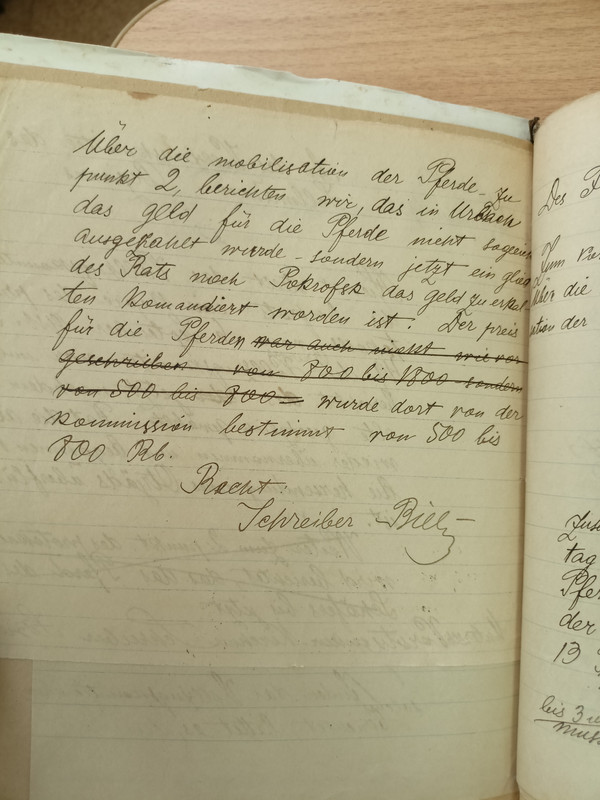 Über die mobilisation der Pferde zu
punkt 2, berichten wir, das in Urbach
das geld für die Pferde nicht sogleich
ausgezahlt wurde - sondern jetzt ein glied
des Rats noch Pokrofsk das geld zu erhal-
ten komandiert worden ist. Der preis
für die Pferden war auch nicht wie vor
geschrieben von 800 bis 1800 sondern
von 500 bis 800 wurde dort von der
kommission bestimmt von 500 bis
800 Rb.
Racht:
Schreiber Bill
Des
Zum
über die
ation der
tag
Pfer
der
13
bis 3